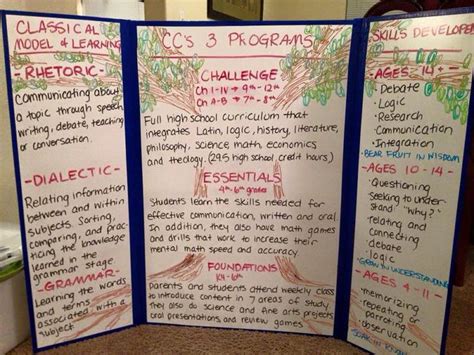 CLASSICAL
MODEL of LEARNING
-RHETORIC-
Communicating about
a topic through speech,
writing, debate, teaching
or conversation.
-DIALECTIC-
Relating information
between and within
subjects. Sorting,
comparing, and prac-
ticing the knowledge
learned in the
grammar stage
-GRAMMAR-
Learning the words
and terms
associated with a
subject
CC's 3 PROGRAMS
CHALLENGE
Ch I-IV → 9th - 12th
Ch A-B → 7th - 8th
Full high school curriculum that
integrates Latin, logic, history, literature,
philosophy, science math, economics
and theology. (24.5 high school credit hours)
ESSENTIALS
4th-6th grades
Students learn the skills needed for
effective communication, written and oral
In addition, they also have math games
and drills that work to increase their
mental math speed and accuracy
FOUNDATIONS
K4-6th
Parents and students attend weekly class
to introduce content in 7 areas of study
They also do science and fine arts projects
oral presentations, and review games
SKILLS DEVELOPED
-AGES 14+-
• Debate
• Logic
• Research
• Communication
• Integration
-BEAR FRUIT IN WISDOM
-AGES 10-14-
• Questioning
seeking to under-
stand "Why?"
• relating and
connecting
• debate
• logic
-GROW IN UNDERSTANDING
-AGES 4-11-
• memorizing
• repeating or
parroting
• observation